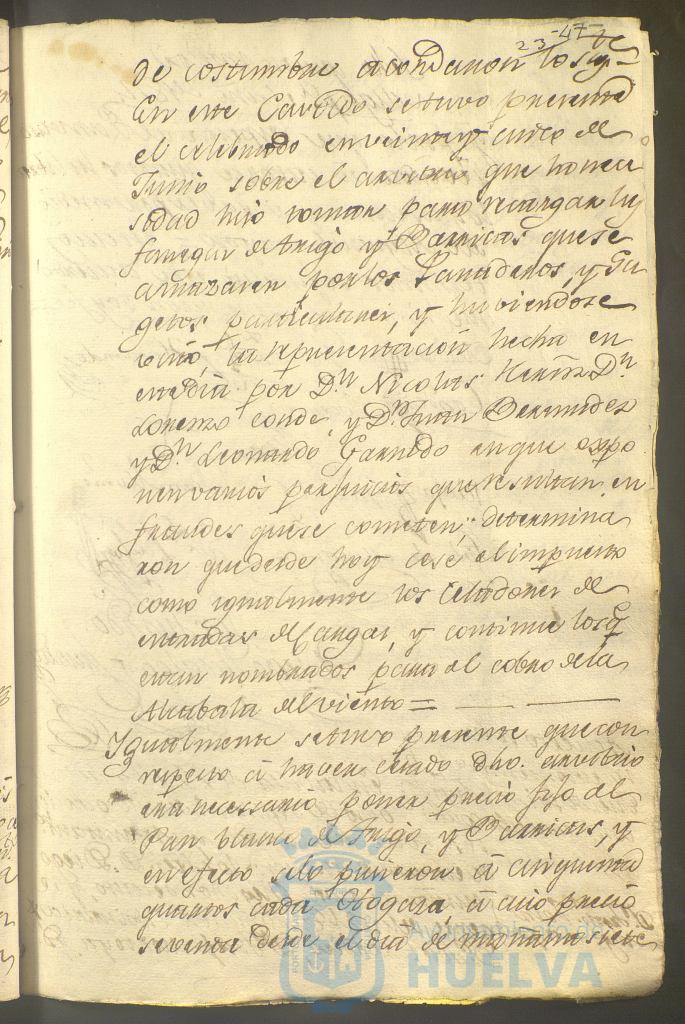 23 -47-
de costumbre acordaron lo sigte
En este Cavildo se tuvo presente
el celebrado en veinte y cinco de
Junio sobre el arvitrio que la nece
sidad hizo tomar para recargar las
fanegas de trigo y Barricas que se
amazaren por los Panaderos, y Su
getos particulares, y haviendose
visto la representacion hecha en
este dia por Dn Nicolas Dn
Lorenzo conde, y Dn Juan Bermudes
y Dn Leonardo Garrido en que expo
nen varios perjuicios que resultan en
fraudes que se cometen; determina
ron que desde hoy cese el impuesto
como igualmente los Celadores de
entradas de Cargas, y continue los q
estan nombrados para el cobro de la
Alcabala del viento =
Igualmente se tuvo presente que con
respecto à haver cesado dho. arvitrio
era necessario poner precio fijo al
Pan blanco de trigo, y Barricas, y
en efecto se lo pusieron à cinquenta
quartos cada Ogaza, à cuio precio
se venda desde el dia de mañana siete
HUELVA